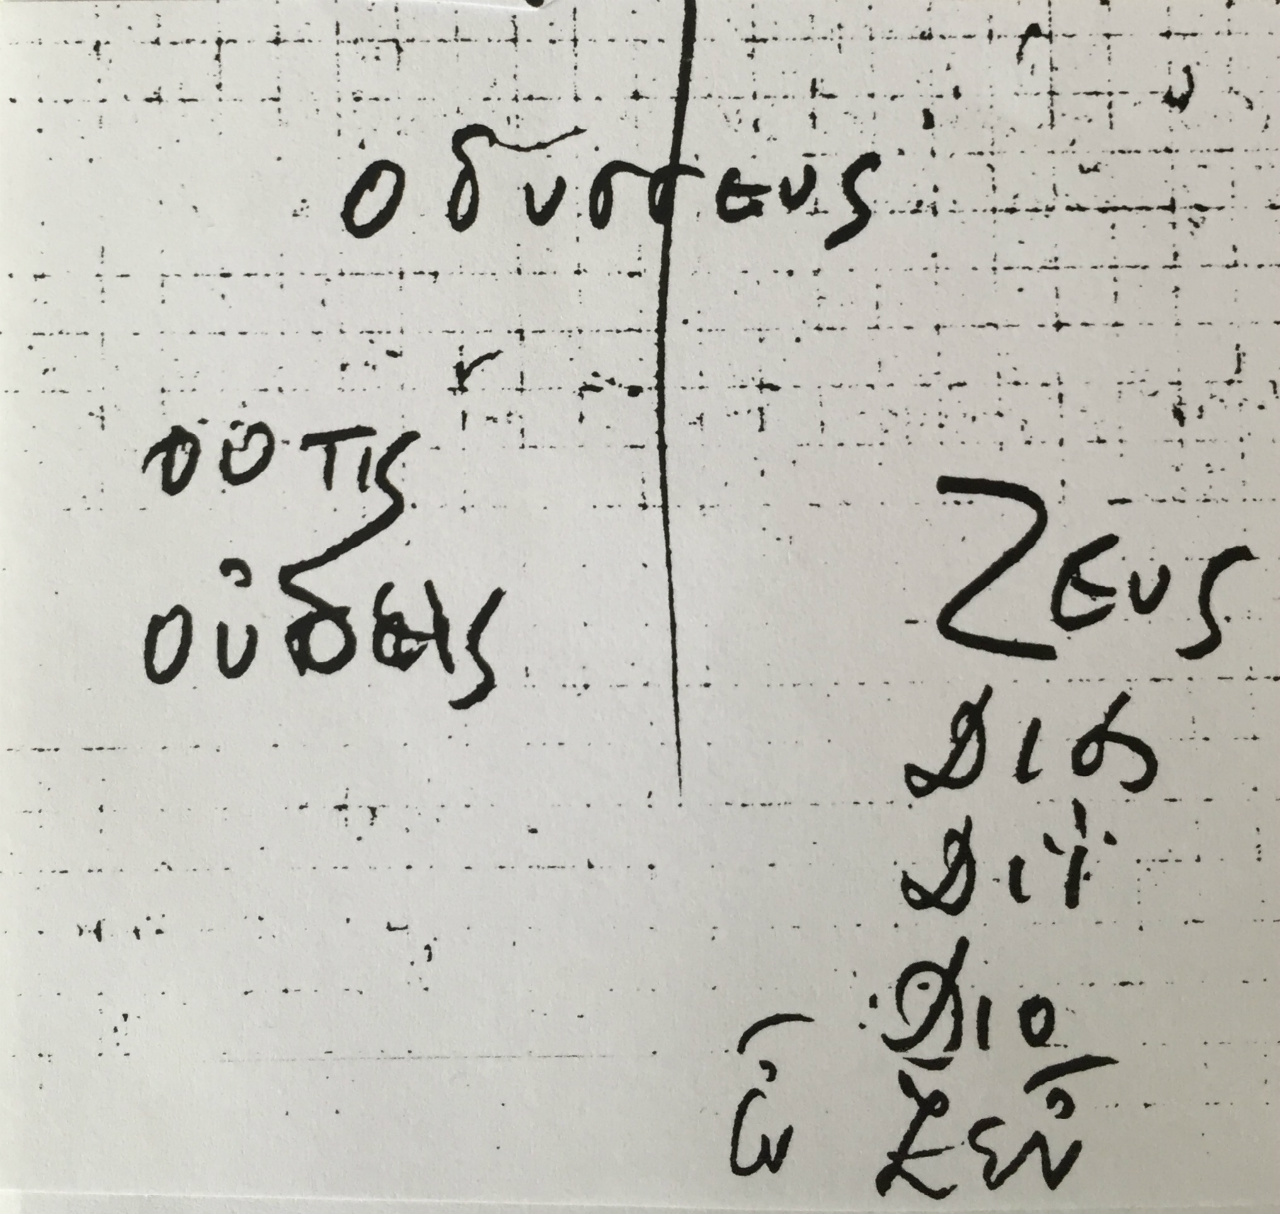 Οδυσσευς
οὐτις
οὐδεις
Ζευς
Διος
Διϊ
Διο
ὦ Ζεῦ